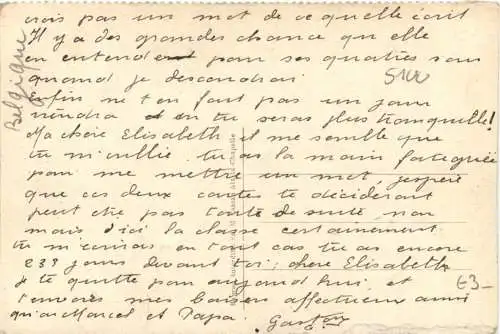 crois pas un mot de ce quelle écrit
Il y a des grandes chance qu elle
en entendent pour ses quatries sous
quand je descendrai
Enfin ne t'en fait pas un jour
viendra et en tu seras plus tranquille!
Ma chère Elisabeth il me semble que
tu m'oublie. tu as la main fatiguée
pour me mettre un mot, jespère
que ces deux cartes te décideront
peut etre pas toute de suite, non
mais d'ici la classe certainement
tu m'ecriras en tout cas tu as encore
233 jours devant toi; chere Elisabeth
je te quitte pour aujourd hui, et
t'envoies mes baisers affectueux ainsi
qu'a Marcel et Papa. Gaston
Belgique
5100
€3-